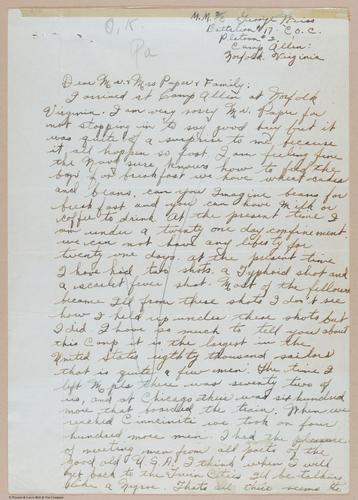 O.K.
Pa
M.M. 2/c George Weiss
Battalion #17 C.O.C.
Platoon #2.
Camp Allen:
Norfolk, Virginia
Dear Mr. & Mrs Paper & Family:
I arrived at Camp Allen at Norfolk
Virginia. I am very sorry Mr. Paper for
not stopping in to say good buy but it
was quite of a surprise to me because
it all happen so fast I am feeling fine
the Navy sure knows how to feed the
boys for breakfast we have wheat cakes
and beans. can you Imagine beans for
breakfast and you can have milk or
coffee to drink. At the present time I
am under a twenty one day confinement
we can not have any liberty for
twenty one days. at the present time
I have had two shots. a Typhoid shot and
a scarlet fever shot. Most of the fellows
became Ill from these shots I don't see
how I held up under these shots but
I did I have so much to tell you about
this Camp it is the largest in the
United States eighty thousand sailors
that is quite a few men. The time I
left Mpls there was seventy two of
us, and at Chicago their was six hundred
more that boarded the train. When we
reached Cinncinite we took on four
hundred more men. I had the pleasure
of meeting men from all parts of the
good old U.S.A. I think when I will
get back to the Twin Cities I'll be talking
like a Thats all there seems to